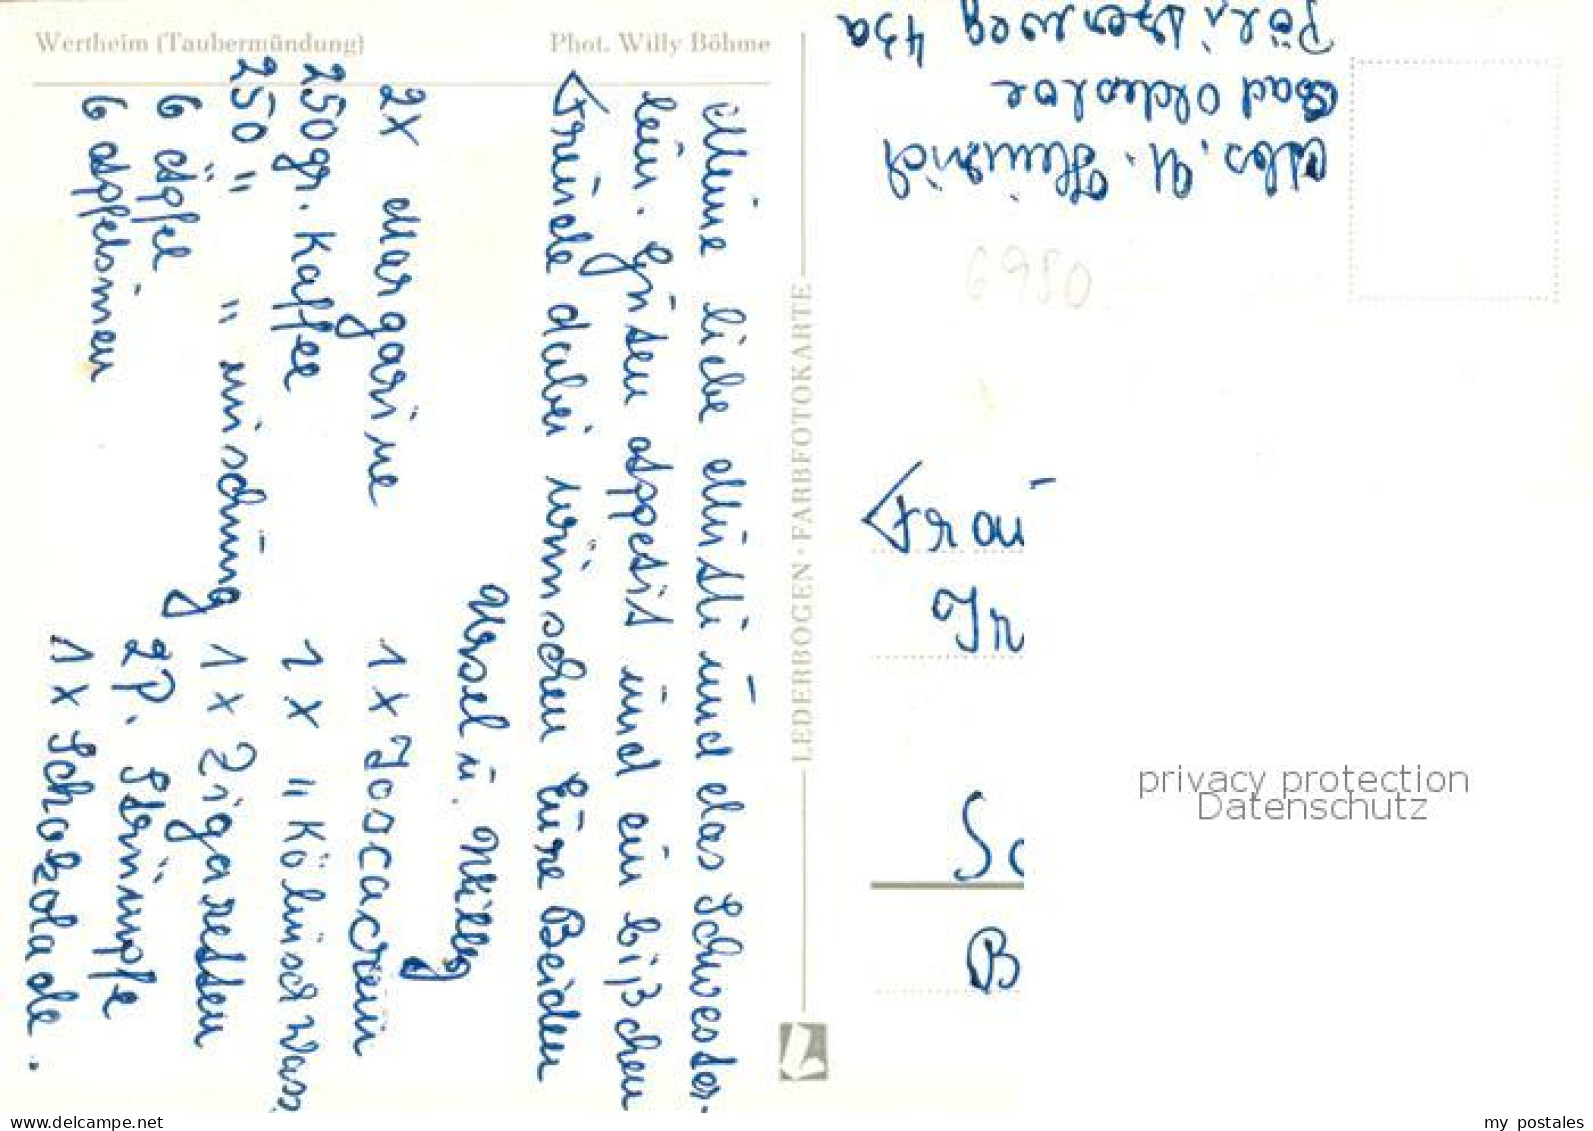 Wertheim (Taubermündung)
Phot. Willy Böhme
Meine liebe Mutti und das Schwester-
lein. Guten Appetit und ein bißchen
Freude dabei wünschen Eure Beiden
Ursel u. Willy
2x Margarine
250gr. Kaffee
250 " " mischung
6 Äpfel
6 Apfelsinen
1 x Joscacreem
1 x " Kölnisch Wass.
1 x Zigaretten
2 P. Strümpfe
1 x Schokolade.
LEDERBOGEN · FARBFOTOKARTE
Abs. U. Heinrich
Bad Oldesloe
Pölitzerweg 43a
6980
Frau
Ir
Sc
B
privacy protection
Datenschutz
www.delcampe.net
my_postales